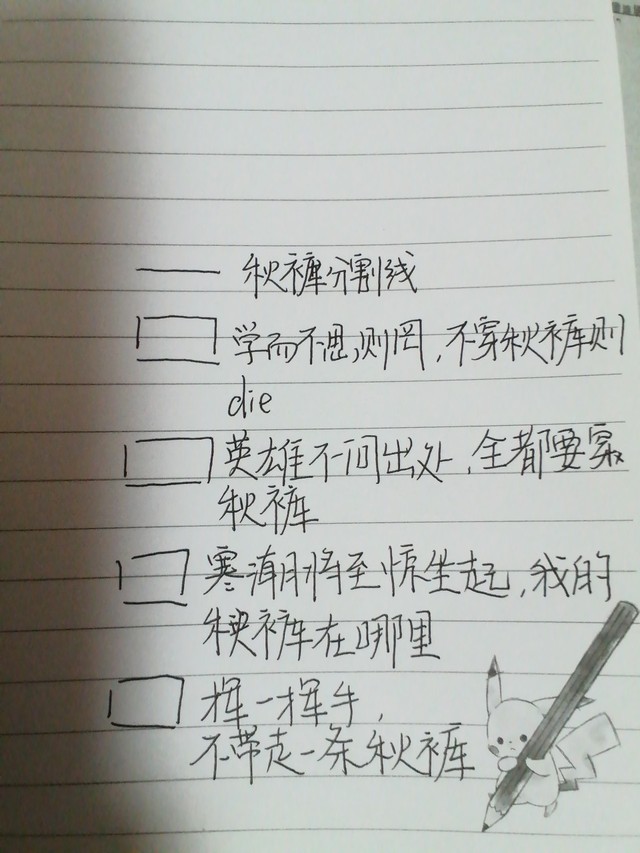 秋裤分割线
学而不思则罔，不穿秋裤则
die
英雄不问出处，全都要穿
秋裤
寒潮将至惊坐起，我的
秋裤在哪里
挥一挥手，
不带走一条秋裤